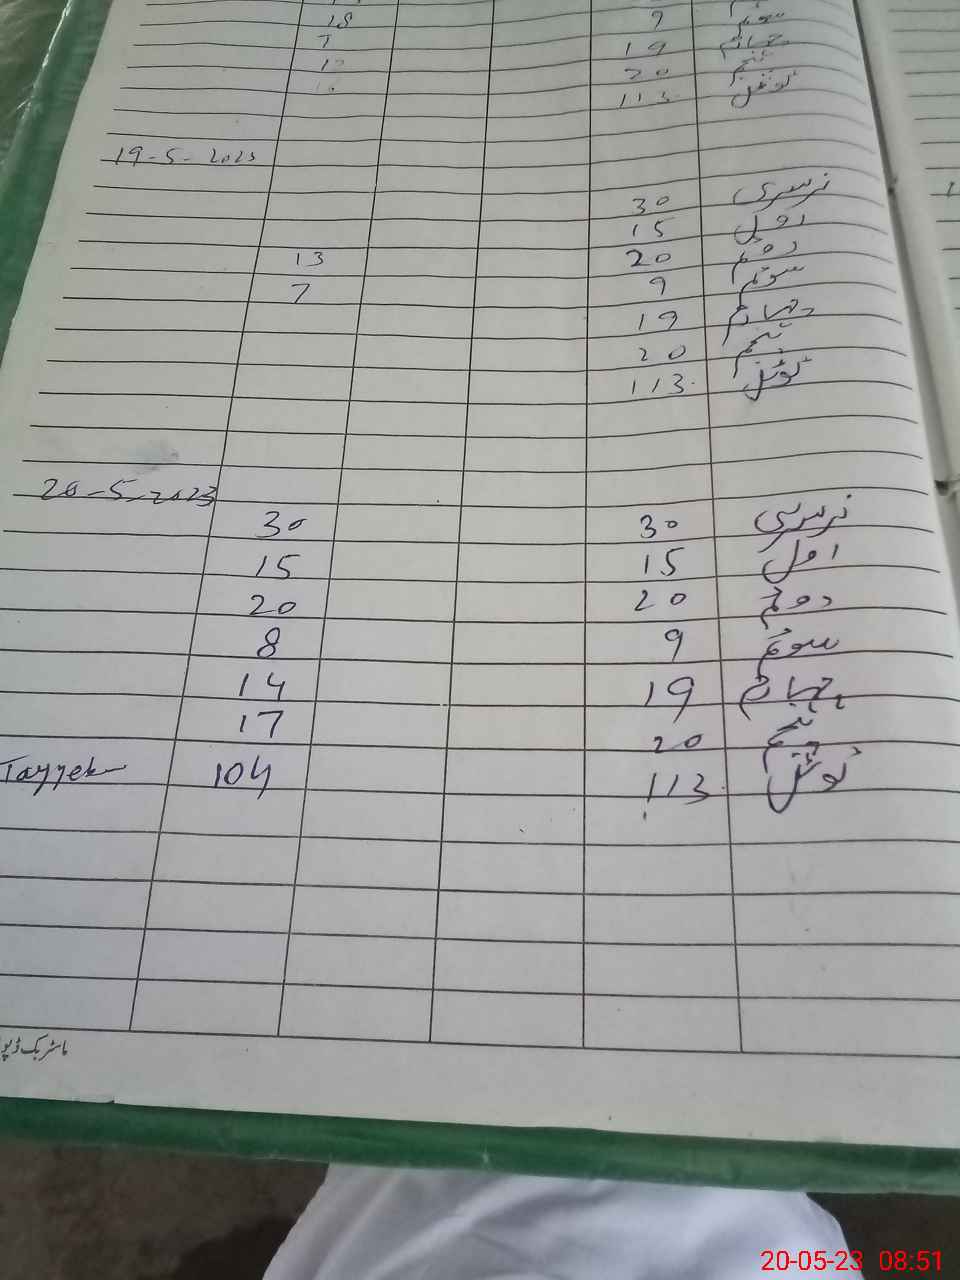 18 9 سوئم
7 19 چہارم
20 پنجم
113 ٹوٹل
19-5-2023
30 نرسری
15 اول
13 20 دوئم
7 9 سوئم
19 چہارم
20 پنجم
113 ٹوٹل
20-5-2023
30 30 نرسری
15 15 اول
20 20 دوئم
8 9 سوئم
14 19 چہارم
17 20 پنجم
104 113 ٹوٹل
ماسٹر بک ڈپو
20-05-23 08:51